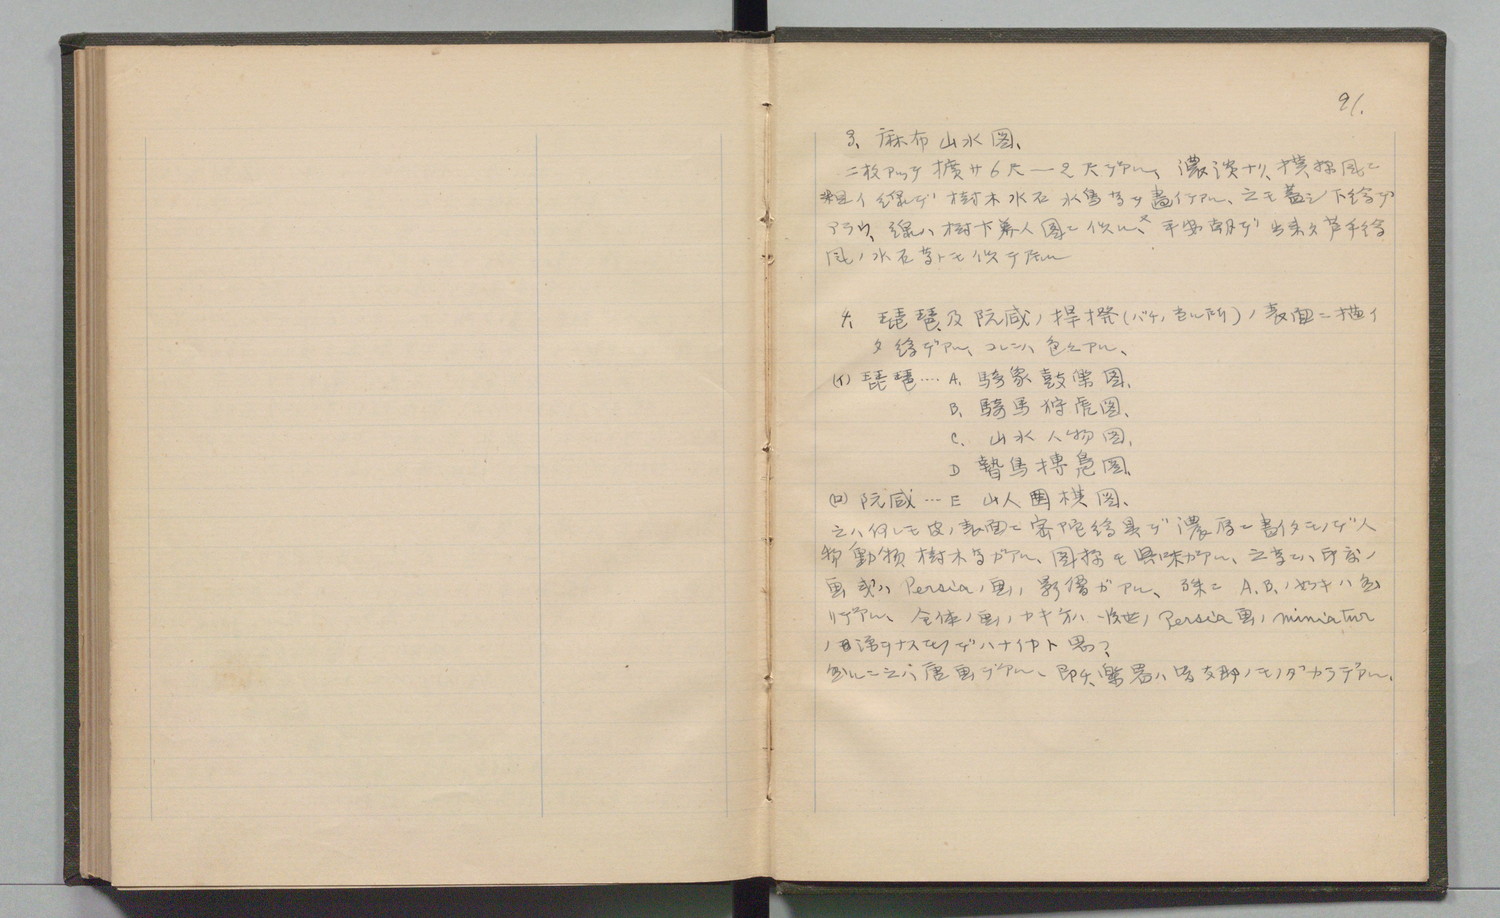 91.
3、麻布山水図、
二枚アッテ擴サ6尺—2尺デアル、濃淡ナク、模様風ニ
粗イ線デ樹木水石水鳥等ヲ畫イテアル、之モ蓋シ下絵デ
アラウ、線ハ樹下美人図ニ似ル、又平安朝デ出来タ芦手絵
風ノ水石等トモ似テ居ル
4、琵琶及阮咸ノ捍撥(バチノ当ル所)ノ表面ニ描イ
タ絵デアル、コレニハ色々アル、
(イ) 琵琶…… A、騎象鼓楽図、
B、騎馬狩虎図、
C、山水人物図、
D 鷙鳥搏鳬図、
(ロ) 阮咸… E 山人囲棋図、
之ハ何レモ皮ノ表面ニ密陀絵具デ濃厚ニ畫イタモノデ人
物動物樹木等ガアル、図様モ興味ガアル、之等ハ印度ノ
画或ハPersiaノ画ノ影響ガアル、殊ニA.B.ノ如キハ
デアル、全体ノ画ノカキ方ハ後世ノPersia画ノminiatur
ノ母語ヲナスモノデハナイカト思フ、
ニ之ハ唐画デアル、即チ楽器ハ皆支那ノモノダカラデアル、